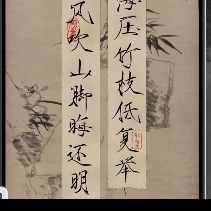 压竹枝低复举
风吹山脚晦还明